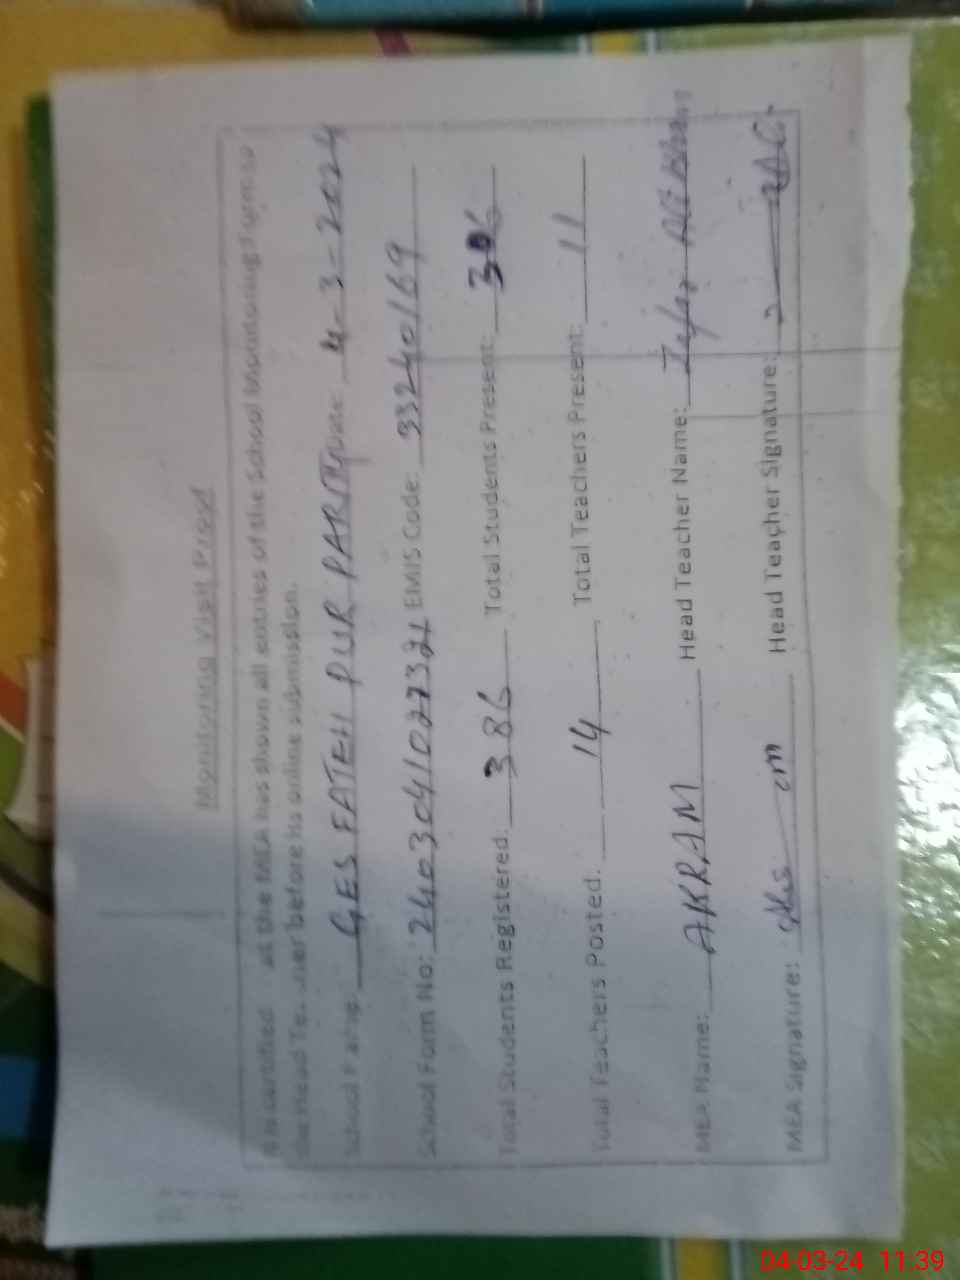 Monitoring Visit Proof
It is certified at the MEA has shown all entries of the School Monitoring
the Head before his online submission.
School Name: GES FATEH PUR Date: 4-3-2024
School Form No: EMIS Code: 33240169
Total Students Registered: 386 Total Students Present:
Total Teachers Posted: 14 Total Teachers Present: 11
MEA Name: AKRAM Head Teacher Name:
MEA Signature: Head Teacher Signature:
04-03-24 11:39